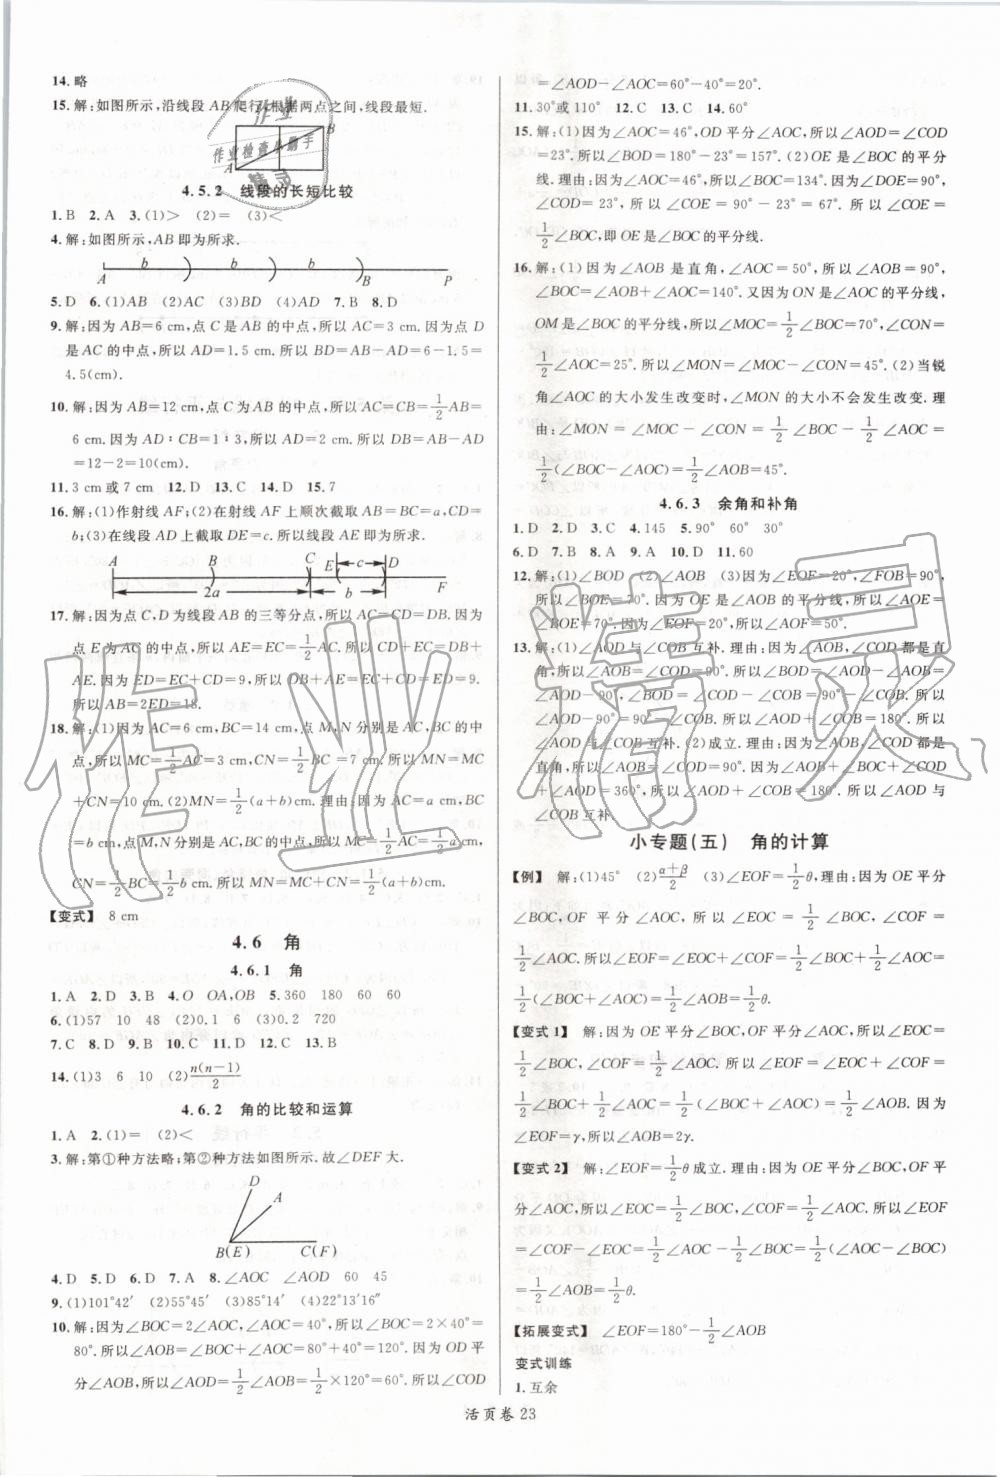 14.略
15.解:如图所示,沿线段AB爬行,根据两点之间,线段最短.
B
A
4.5.2 线段的长短比较
1.B 2.A 3.(1)> (2)= (3)<
4.解:如图所示,AB即为所求.
b b b
A B P
5.D 6.(1)AB (2)AC (3)BD (4)AD 7.B 8.D
9.解:因为AB=6 cm,点C是AB的中点,所以AC=3 cm.因为点D
是AC的中点,所以AD=1.5 cm.所以BD=AB-AD=6-1.5=
4.5(cm).
10.解:因为AB=12 cm,点C为AB的中点,所以AC=CB=1/2AB=
6 cm.因为AD∶CB=1∶3,所以AD=2 cm.所以DB=AB-AD
=12-2=10(cm).
11.3 cm或7 cm 12.D 13.C 14.D 15.7
16.解:(1)作射线AF;(2)在射线AF上顺次截取AB=BC=a,CD
=b;(3)在线段AD上截取DE=c.所以线段AE即为所求.
A B C E c D
2a b F
17.解:因为点C,D为线段AB的三等分点,所以AC=CD=DB.因为
点E为AC的中点,所以AE=EC=1/2AC.所以CD+EC=DB+
AE.因为ED=EC+CD=9,所以DB+AE=EC+CD=ED=9.
所以AB=2ED=18.
18.解:(1)因为AC=6 cm,BC=14 cm,点M,N分别是AC,BC的中
点,所以MC=1/2AC=3 cm,CN=1/2BC=7 cm.所以MN=MC
+CN=10 cm.(2)MN=1/2(a+b)cm.理由:因为AC=a cm,BC
=b cm,点M,N分别是AC,BC的中点,所以MC=1/2AC=1/2a cm,
CN=1/2BC=1/2b cm.所以MN=MC+CN=1/2(a+b)cm.
【变式】 8 cm
4.6 角
4.6.1 角
1.A 2.D 3.B 4.O OA,OB 5.360 180 60 60
6.(1)57 10 48 (2)0.1 6 (3)0.2 720
7.C 8.D 9.B 10.C 11.D 12.C 13.B
14.(1)3 6 10 (2)n(n-1)/2
4.6.2 角的比较和运算
1.A 2.(1)= (2)<
3.解:第①种方法略;第②种方法如图所示.故∠DEF大.
D
A
B(E) C(F)
4.D 5.D 6.D 7.A 8.∠AOC ∠AOD 60 45
9.(1)101°42′ (2)55°45′ (3)85°14′ (4)22°13′16″
10.解:因为∠BOC=2∠AOC,∠AOC=40°,所以∠BOC=2×40°=
80°.所以∠AOB=∠BOC+∠AOC=80°+40°=120°.因为OD平
分∠AOB,所以∠AOD=1/2∠AOB=1/2×120°=60°.所以∠COD
=∠AOD-∠AOC=60°-40°=20°.
11.30°或110° 12.C 13.C 14.60°
15.解:(1)因为∠AOC=46°,OD平分∠AOC,所以∠AOD=∠COD
=23°.所以∠BOD=180°-23°=157°.(2)OE是∠BOC的平分
线.理由:因为∠AOC=46°,所以∠BOC=134°.因为∠DOE=90°,
∠COD=23°,所以∠COE=90°-23°=67°.所以∠COE=
1/2∠BOC,即OE是∠BOC的平分线.
16.解:(1)因为∠AOB是直角,∠AOC=50°,所以∠AOB=90°,
∠BOC=∠AOB+∠AOC=140°.又因为ON是∠AOC的平分线,
OM是∠BOC的平分线,所以∠MOC=1/2∠BOC=70°,∠CON=
1/2∠AOC=25°.所以∠MON=∠MOC-∠CON=45°.(2)当锐
角∠AOC的大小发生改变时,∠MON的大小不会发生改变.理
由:∠MON=∠MOC-∠CON=1/2∠BOC-1/2∠AOC=
1/2(∠BOC-∠AOC)=1/2∠AOB=45°.
4.6.3 余角和补角
1.D 2.D 3.C 4.145 5.90° 60° 30°
6.D 7.B 8.A 9.A 10.D 11.60
12.解:(1)∠BOD (2)∠AOB (3)因为∠EOF=20°,∠FOB=90°,
所以∠BOE=70°.因为OE是∠AOB的平分线,所以∠AOE=
∠BOE=70°.因为∠EOF=20°,所以∠AOF=50°.
13.解:(1)∠AOD与∠COB互补.理由:因为∠AOB,∠COD都是直
角,所以∠AOB=∠COD=90°.所以∠BOD=∠AOD-∠AOB=
∠AOD-90°,∠BOD=∠COD-∠COB=90°-∠COB.所以
∠AOD-90°=90°-∠COB.所以∠AOD+∠COB=180°.所以
∠AOD与∠COB互补.(2)成立.理由:因为∠AOB,∠COD都是
直角,所以∠AOB=∠COD=90°.因为∠AOB+∠BOC+∠COD
+∠AOD=360°,所以∠AOD+∠BOC=180°.所以∠AOD与
∠COB互补.
小专题(五) 角的计算
【例】 解:(1)45° (2)α+β/2 (3)∠EOF=1/2θ,理由:因为OE平分
∠BOC,OF平分∠AOC,所以∠EOC=1/2∠BOC,∠COF=
1/2∠AOC.所以∠EOF=∠EOC+∠COF=1/2∠BOC+1/2∠AOC=
1/2(∠BOC+∠AOC)=1/2∠AOB=1/2θ.
【变式1】 解:因为OE平分∠BOC,OF平分∠AOC,所以∠EOC=
1/2∠BOC,∠COF=1/2∠AOC.所以∠EOF=∠EOC+∠COF=
1/2∠BOC+1/2∠AOC=1/2(∠BOC+∠AOC)=1/2∠AOB.因为
∠EOF=γ,所以∠AOB=2γ.
【变式2】 解:∠EOF=1/2θ成立.理由:因为OE平分∠BOC,OF平
分∠AOC,所以∠EOC=1/2∠BOC,∠COF=1/2∠AOC.所以∠EOF
=∠COF-∠EOC=1/2∠AOC-1/2∠BOC=1/2(∠AOC-∠BOC)
=1/2∠AOB=1/2θ.
【拓展变式】 ∠EOF=180°-1/2∠AOB
变式训练
1.互余
活页卷 23
作业
作业检查小助手
精灵
作业精灵